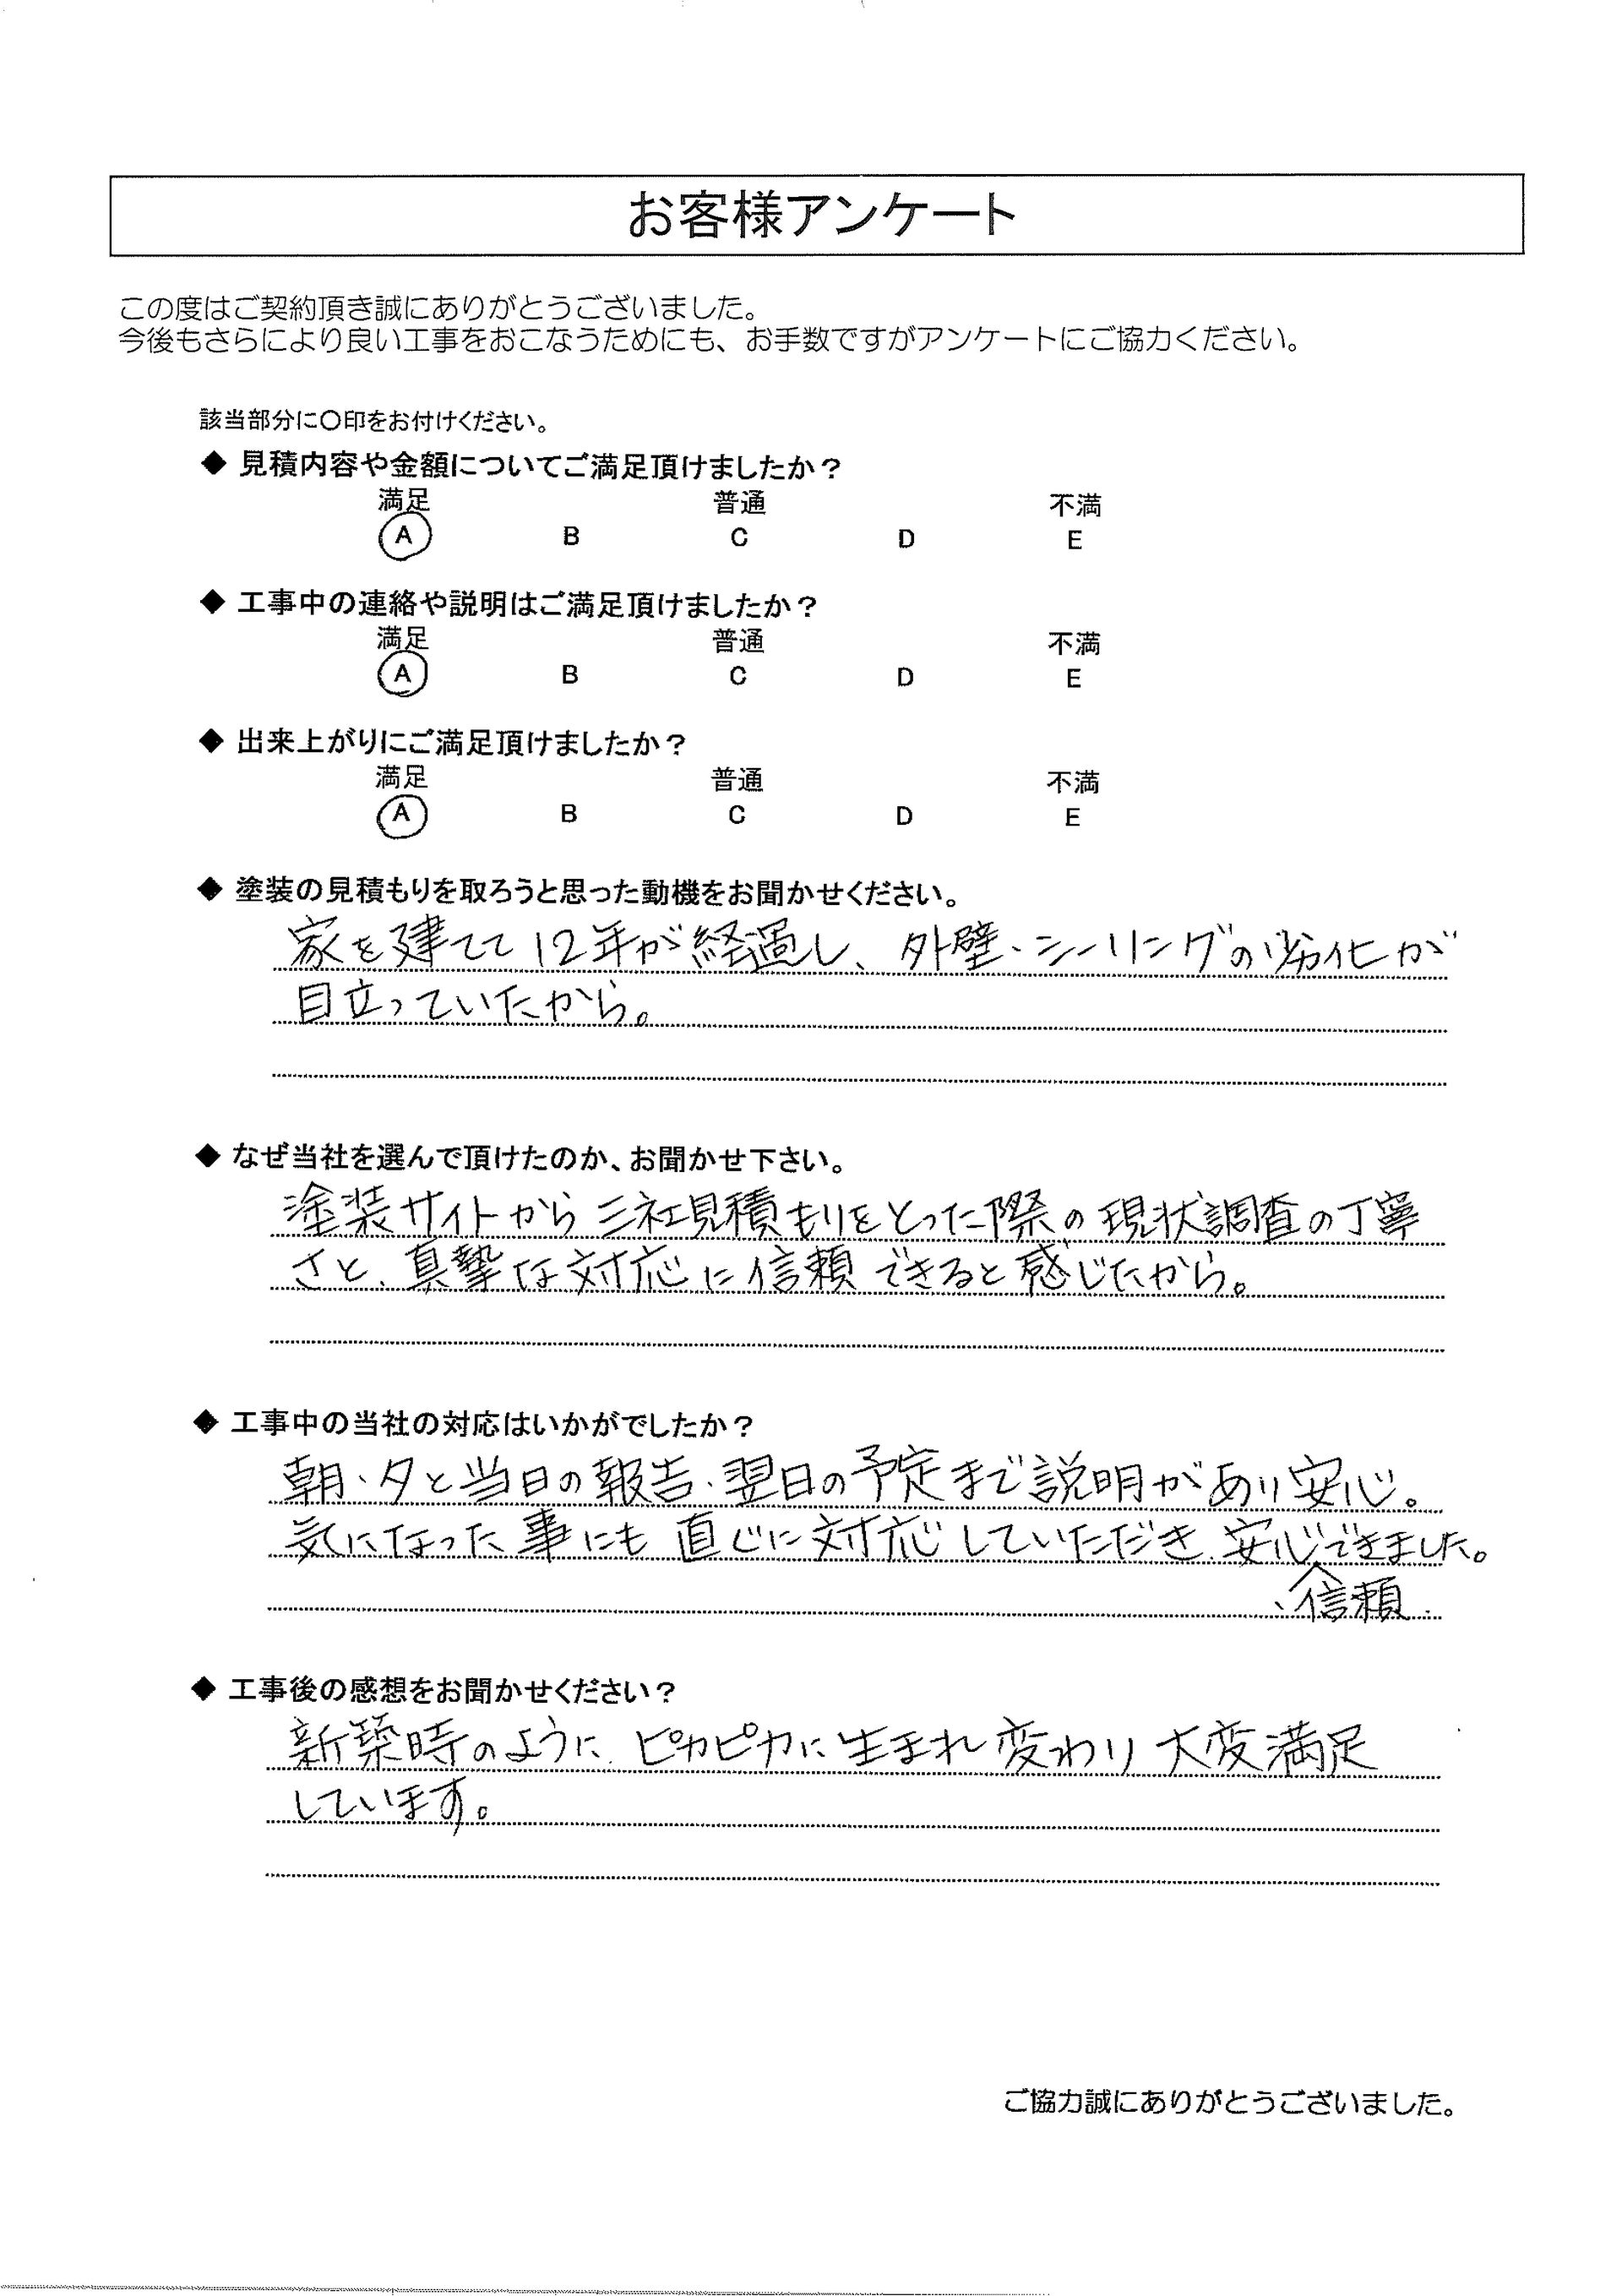 お客様アンケート
この度はご契約頂き誠にありがとうございました。
今後もさらにより良い工事をおこなうためにも、お手数ですがアンケートにご協力ください。
該当部分に〇印をお付けください。
◆ 見積内容や金額についてご満足頂けましたか？
満足 普通 不満
A B C D E
◆ 工事中の連絡や説明はご満足頂けましたか？
満足 普通 不満
A B C D E
◆ 出来上がりにご満足頂けましたか？
満足 普通 不満
A B C D E
◆ 塗装の見積もりを取ろうと思った動機をお聞かせください。
家を建てて12年が経過し、外壁・シーリングの劣化が
目立っていたから。
◆ なぜ当社を選んで頂けたのか、お聞かせ下さい。
塗装サイトから三社見積もりをとった際の現状調査の丁寧
さと、真摯な対応に信頼できると感じたから。
◆ 工事中の当社の対応はいかがでしたか？
朝・夕と当日の報告・翌日の予定まで説明があり安心。
気になった事にも直ぐに対応していただき、安心できました。
、信頼
◆ 工事後の感想をお聞かせください？
新築時のように、ピカピカに生まれ変わり大変満足
しています。
ご協力誠にありがとうございました。